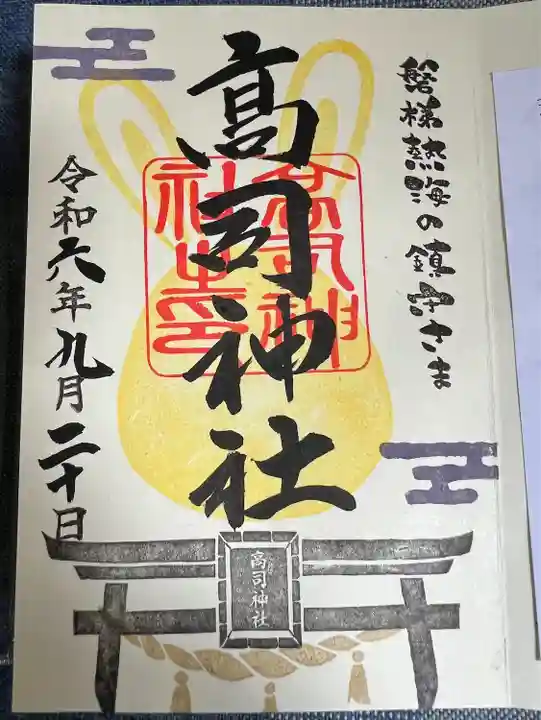 磐梯熱海の鎮守さま
高司神社
高司神社之印
令和六年九月二十日
高司神社